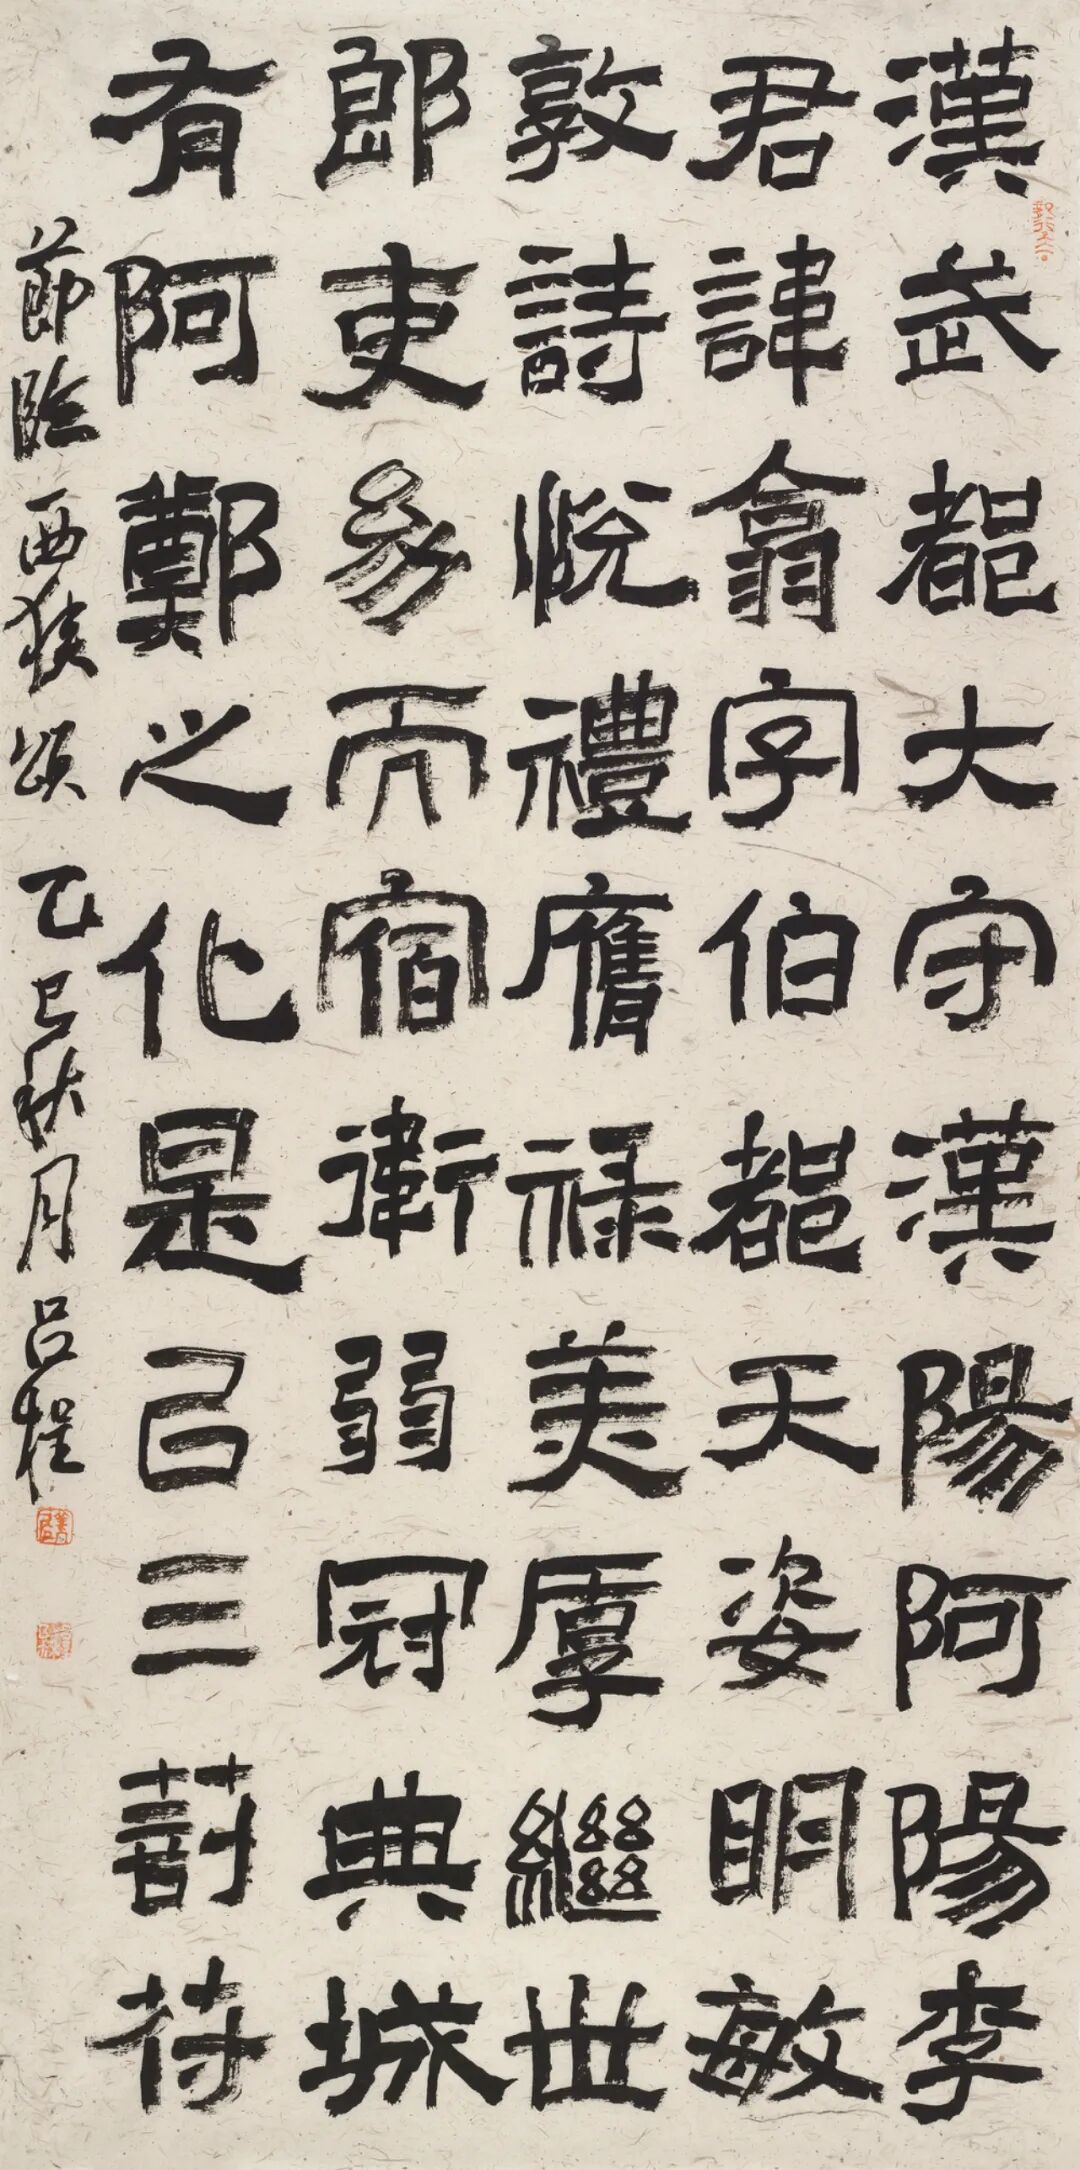 漢武都大守漢陽阿陽李
君諱翕字伯都天姿明敏
敦詩悅禮膺祿美厚繼世
郎吏幼而宿衛弱冠典城
有阿鄭之化是㠯三剖苻
節臨西狹頌 乙巳秋月 呂程